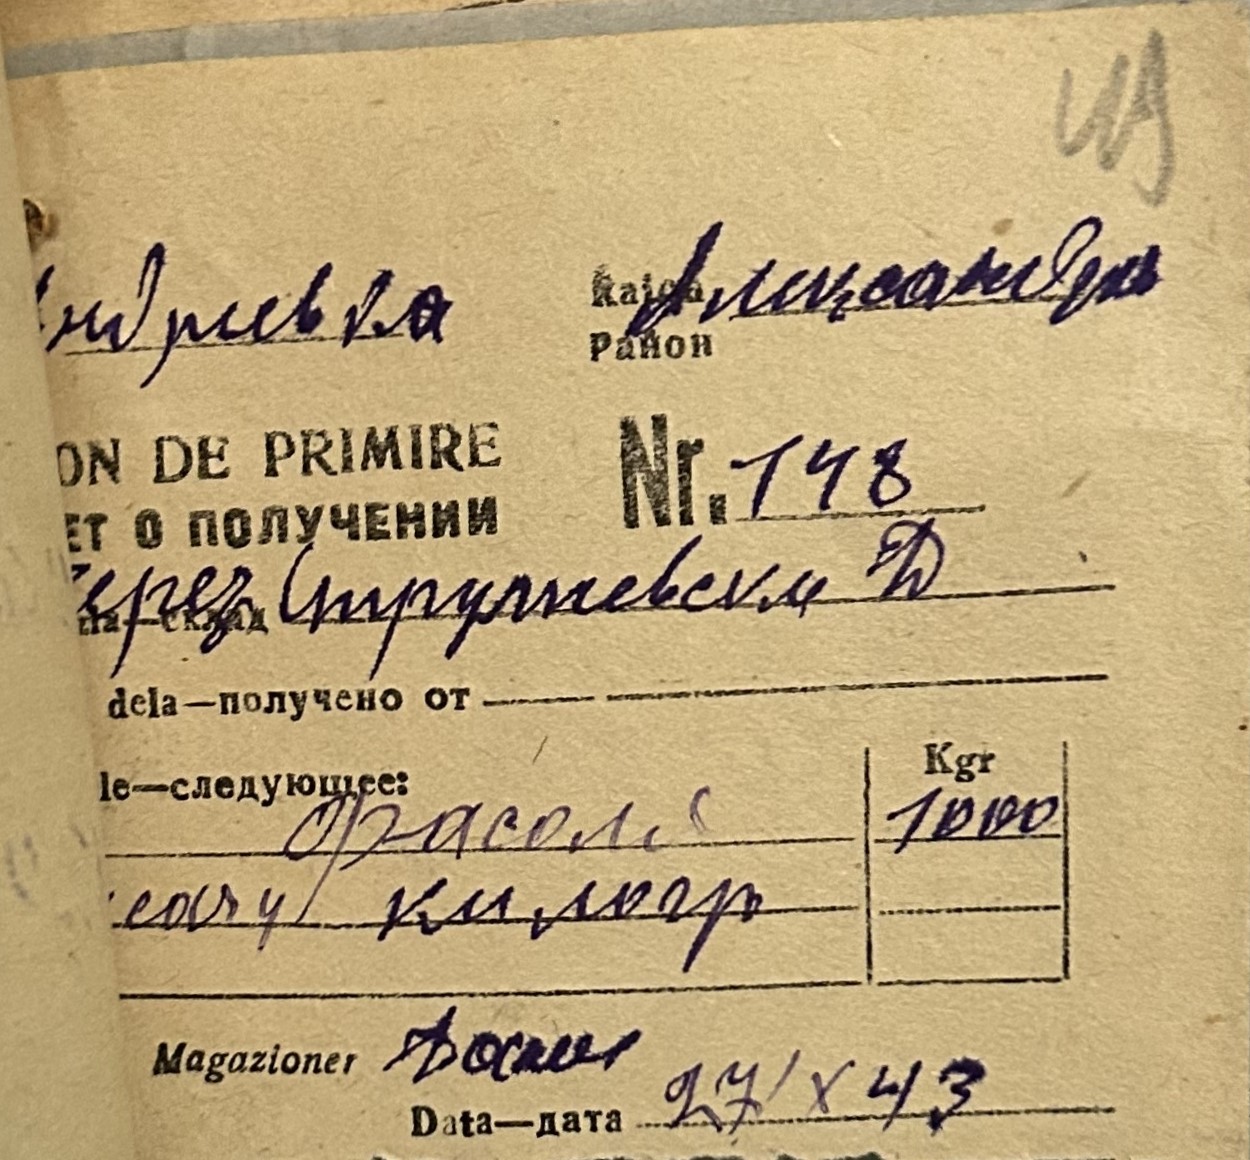 ндриевка
Raion Александр
Район
ON DE PRIMIRE Nr. 148
ЕТ О ПОЛУЧЕНИИ
через
склад
dela—получено от
le—следующее: Kgr
Фасоли 1000
сячу килогр
Magazioner
Data—дата 27/X 43